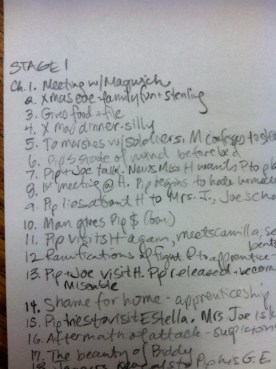 STAGE 1
Ch. 1. Meeting w/ Magwitch
2. Xmas eve - family fun + stealing
3. Gives food + file
4. X mas dinner - silly
5. To marshes w/ soldiers, M confesses to
6. Pip's state of mind before bed
7. Pip + Joe talk. News Miss H wants P to
8. 1st meeting @ H. Pip begins to hate
9. Pip lies about H to Mrs. J., Joe
10. Man gives Pip $
11. Pip visits H again, meets camilla,
12. Ramifications of fight. P to apprentice -
13. Pip + Joe visit H. Pip released -
Miserable
14. Shame for home - apprenticeship
15. Pip tries to visit Estella. Mrs Joe is
16. Aftermath of attack - suspicions
17. The beauty of Biddy
18. Pip his G. E.